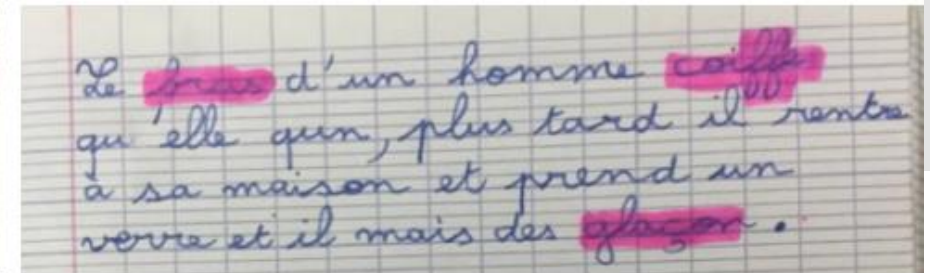 Le bras d'un homme coiffe
qu'elle qun, plus tard il rentre
a sa maison et prend un
verre et il mais des glaçon.